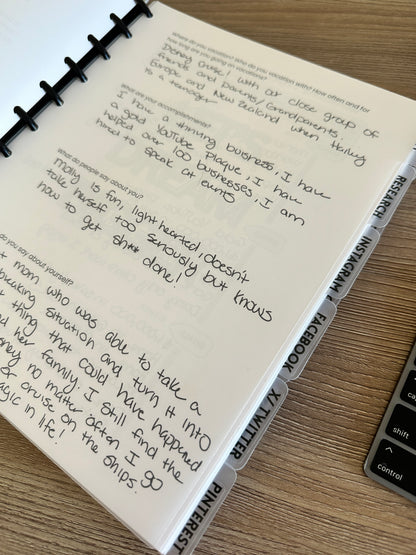 Where do you vacation? Who do you vacation with? How often and for
how long are you going on vacations?
Disney Cruise! With our close group of
friends and parents/Grandparents,
Europe and New Zealand when Hailey
is a teenager
What are your accomplishments?
I have a thriving business, I have
a gold YouTube Plaque, I have
helped over 100 businesses, I am
hired to speak at events
What do people say about you?
Molly is fun, light hearted, doesn't
take herself too seriously but knows
how to get sh** done!
do you say about yourself?
mom who was able to take a
breaking situation and turn it into
thing that could have happened
her family. I still find the
no matter often I go
cruise on the
in life!
ships.
RESEARCH
INSTAGRAM
FACEBOOK
X/TWITTER
PINTEREST
shift
control